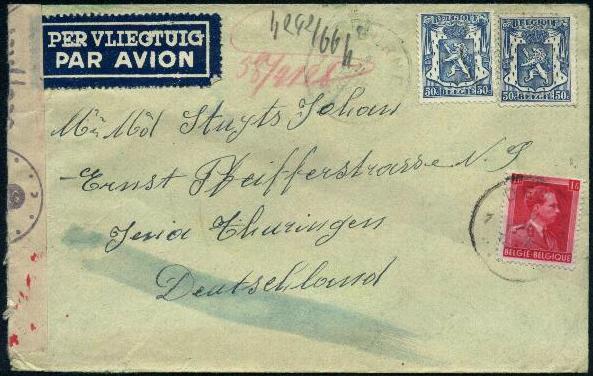 PER VLIEGTUIG
PAR AVION
4292/66
BELGIQUE
50 BELGIE 50
BELGIQUE
50 BELGIE 50
Stuyts Johan
Ernst Pfeifferstrasse N.
Jena Thuringen
Deutschland
BELGIE-BELGIQUE